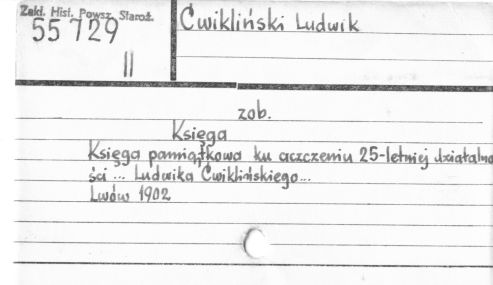 Zakł. Hist. Powsz. Staroż.
55729
II
Ćwikliński Ludwik
zob.
Księga
Księga pamiątkowa ku uczczeniu 25-letniej działalno
ści ... Ludwika Ćwiklińskiego...
Lwów 1902